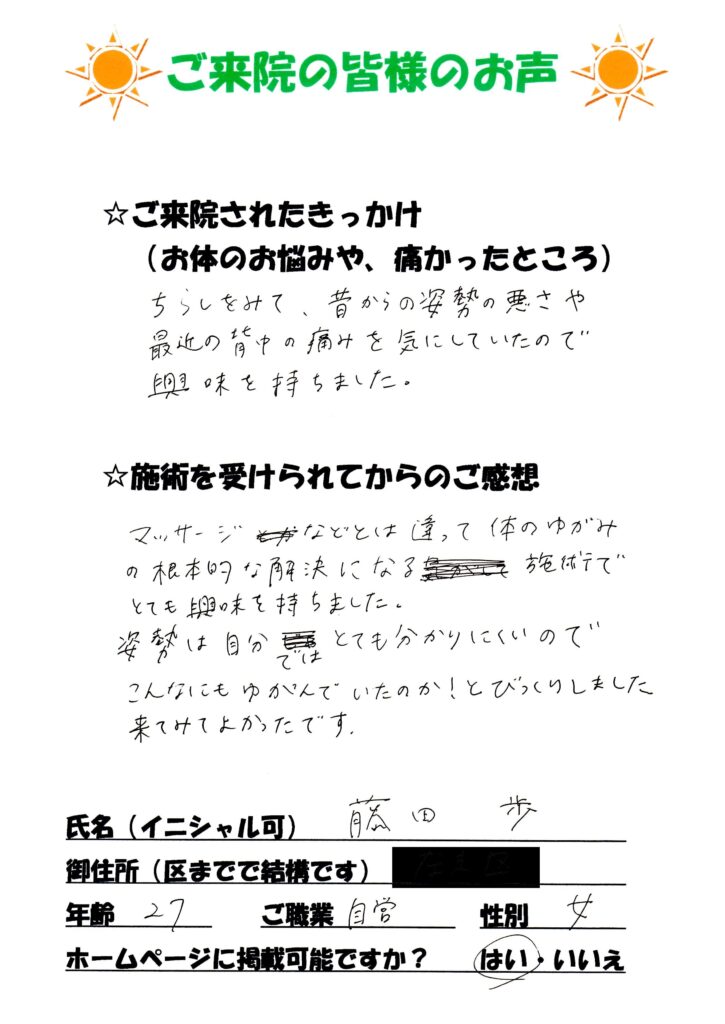 ご来院の皆様のお声
☆ご来院されたきっかけ
（お体のお悩みや、痛かったところ）
ちらしをみて、昔からの姿勢の悪さや
最近の背中の痛みを気にしていたので
興味を持ちました。
☆施術を受けられてからのご感想
マッサージなどとは違って体のゆがみ
の根本的な解決になる施術で
とても興味を持ちました。
姿勢は自分ではとても分かりにくいので
こんなにもゆがんでいたのか！とびっくりしました
来てみてよかったです.
氏名（イニシャル可） 藤田 歩
御住所（区までで結構です）
年齢 27 ご職業 自営 性別 女
ホームページに掲載可能ですか？ はい・いいえ